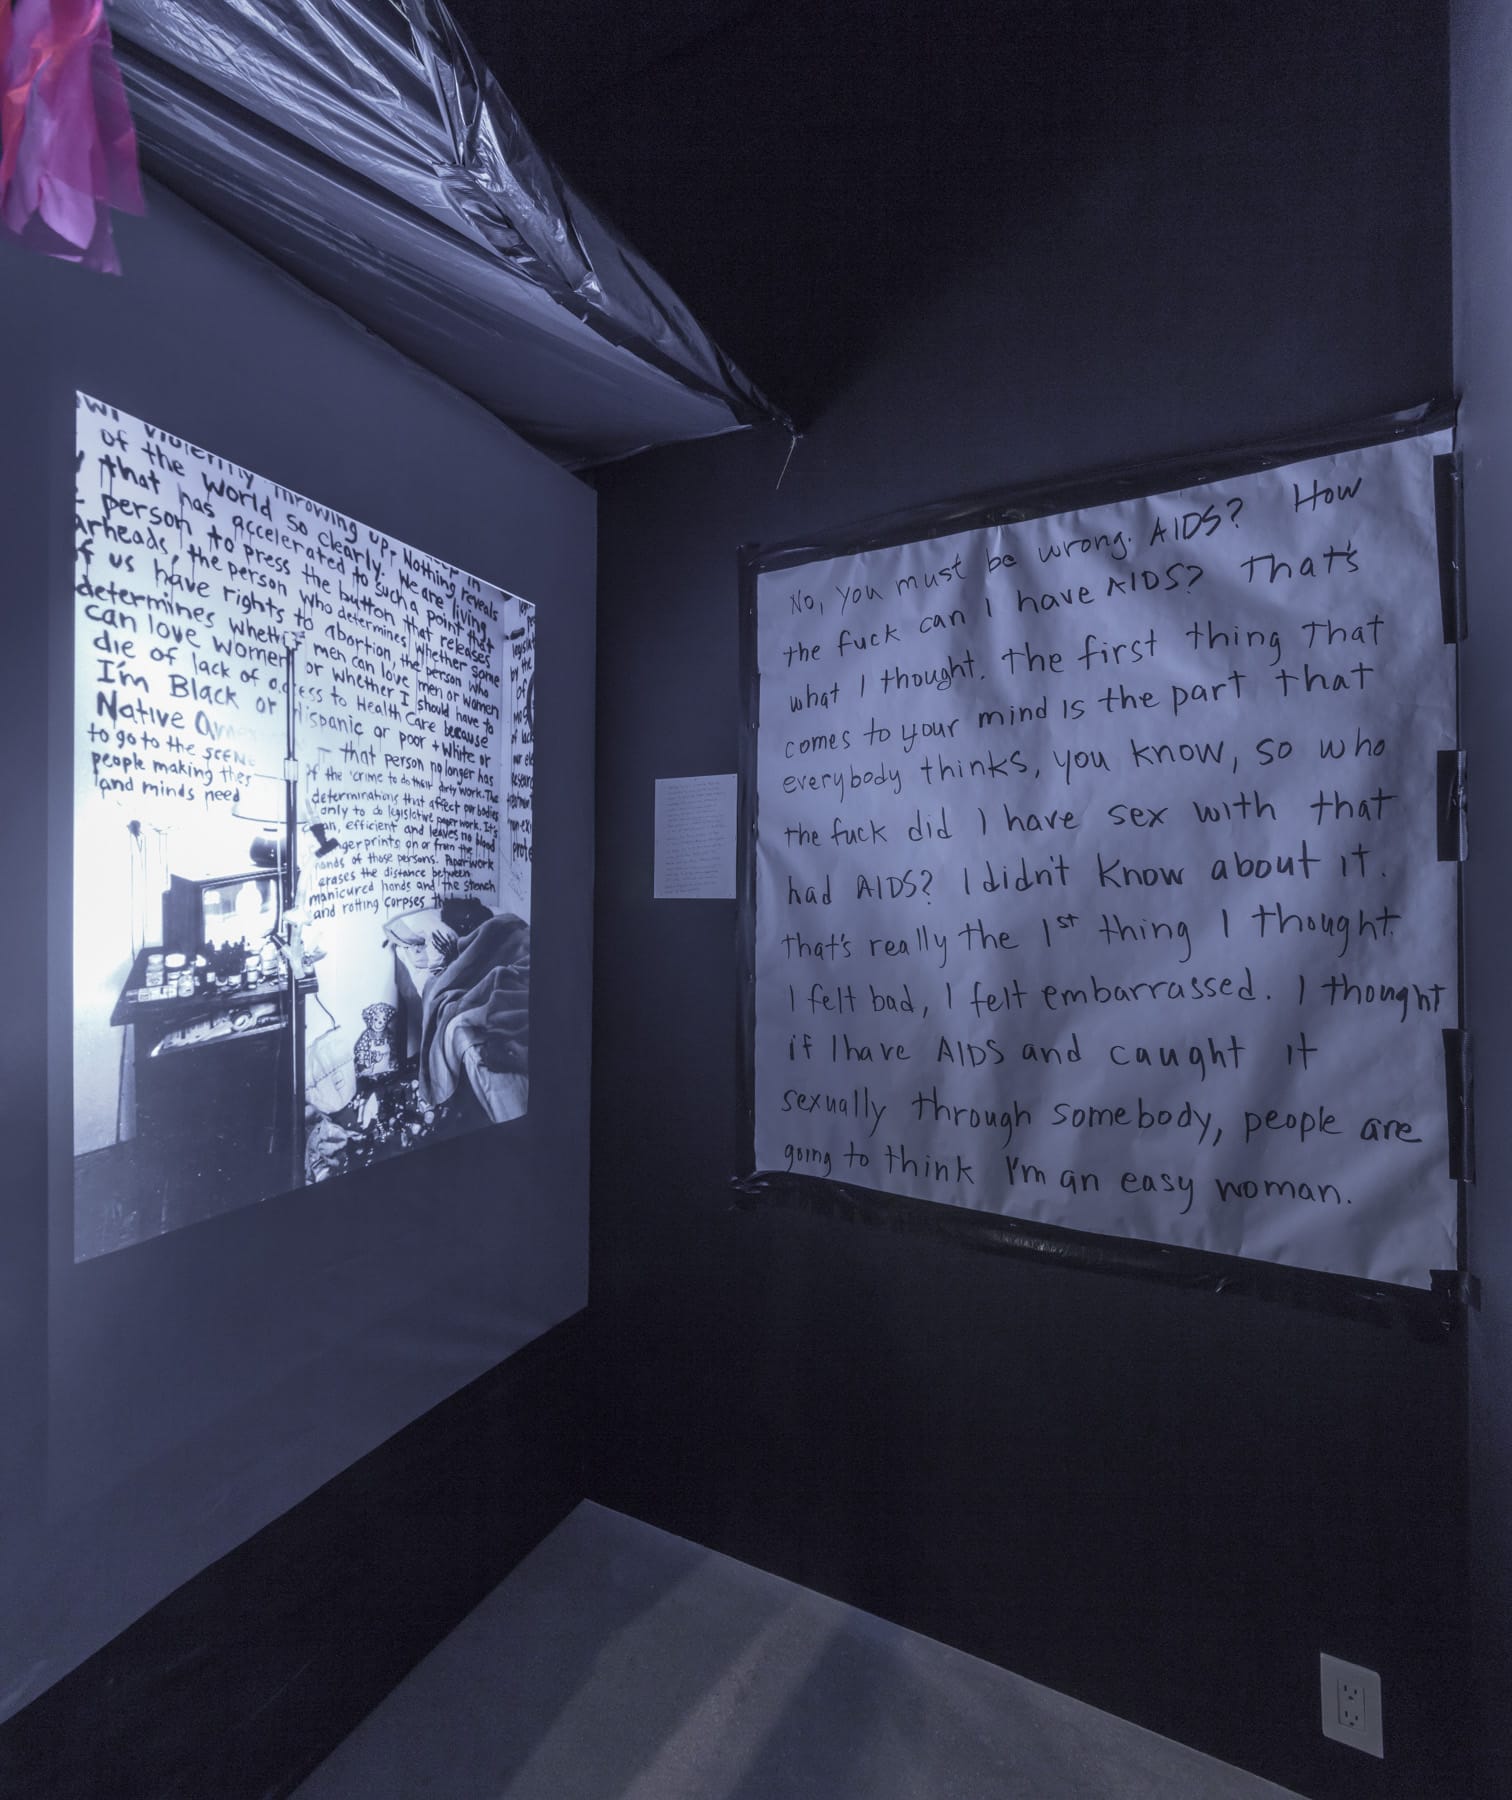 violently throwing up. Nothing reveals
of the world so clearly. We are living
that has accelerated to such a point that
person to press the button that releases
arheads, the person who determines whether some
f us have rights to abortion, the person who
determines whether men can love men or women
can love women or whether I should have to
die of lack of access to Health Care because
I'm Black or Hispanic or poor + white or
Native
that person no longer has
to go to the SCENE
of the 'crime to do their dirty work. The
people making thes
determinations that affect our bodies
and minds need
only to do legislative paper work. It's
an, efficient and leaves no blood
ngerprints on or from the
hands of those persons. Paperwork
erases the distance between
manicured hands and the stench
and rotting corpses
No, you must be wrong. AIDS? How
the fuck can I have AIDS? That's
what I thought. The first thing That
comes to your mind is the part that
everybody thinks, you know, so who
the fuck did I have sex with that
had AIDS? I didn't know about it.
that's really the 1st thing I thought.
I felt bad, I felt embarrassed. I thought
if I have AIDS and caught it
sexually through somebody, people are
going to think I'm an easy woman.